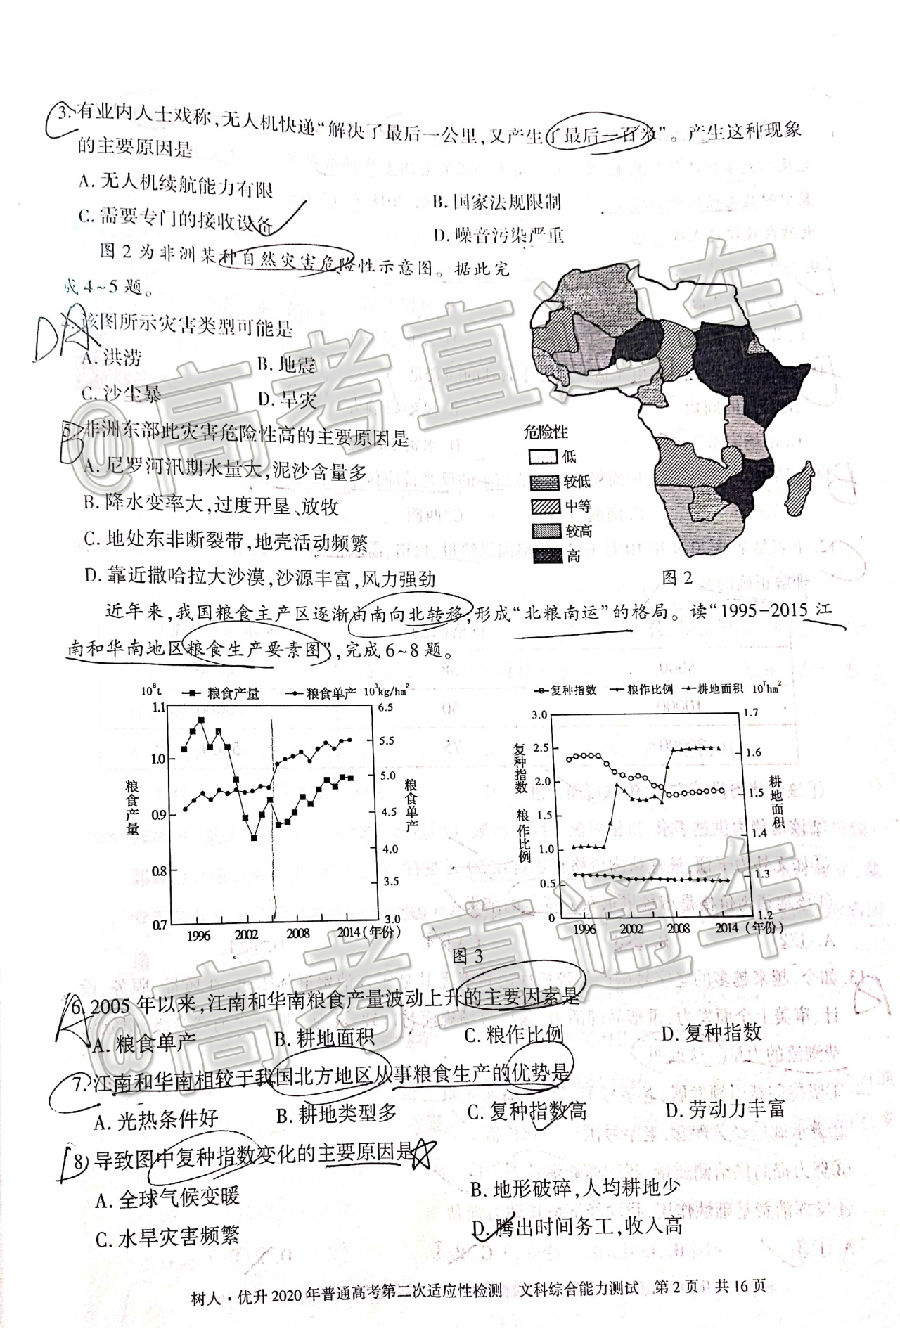 3.有业内人士戏称,无人机快递“解决了最后一公里,又产生了最后一百米”。产生这种现象
的主要原因是
A.无人机续航能力有限
B.国家法规限制
C.需要专门的接收设备
D.噪音污染严重
图2为非洲某种自然灾害危险性示意图。据此完
成4~5题。
DA
4.该图所示灾害类型可能是
A.洪涝
B.地震
C.沙尘暴
D.旱灾
5.非洲东部此灾害危险性高的主要原因是
A.尼罗河汛期水量大,泥沙含量多
B.降水变率大,过度开垦、放牧
C.地处东非断裂带,地壳活动频繁
D.靠近撒哈拉大沙漠,沙源丰富,风力强劲
危险性
低
较低
中等
较高
高
图2
近年来,我国粮食主产区逐渐由南向北转移,形成“北粮南运”的格局。读“1995-2015江
南和华南地区粮食生产要素图”,完成6~8题。
10⁸t 粮食产量 粮食单产 10³kg/hm²
1.1 1.0 0.9 0.8 0.7
粮食产量
6.5 6.0 5.5 5.0 4.5 4.0 3.5 3.0
粮食单产
1996 2002 2008 2014(年份)
复种指数 粮作比例 耕地面积 10⁷hm²
3.0 2.5 2.0 1.5 1.0 0.5 0
复种指数 粮作比例
1.7 1.6 1.5 1.4 1.3 1.2
耕地面积
1996 2002 2008 2014(年份)
图3
6.2005年以来,江南和华南粮食产量波动上升的主要因素是
A.粮食单产
B.耕地面积
C.粮作比例
D.复种指数
7.江南和华南相较于我国北方地区从事粮食生产的优势是
A.光热条件好
B.耕地类型多
C.复种指数高
D.劳动力丰富
8.导致图中复种指数变化的主要原因是
A.全球气候变暖
B.地形破碎,人均耕地少
C.水旱灾害频繁
D.腾出时间务工,收入高
树人·优升2020年普通高考第二次适应性检测 文科综合能力测试 第2页 共16页
@高考直通车
@高考直通车